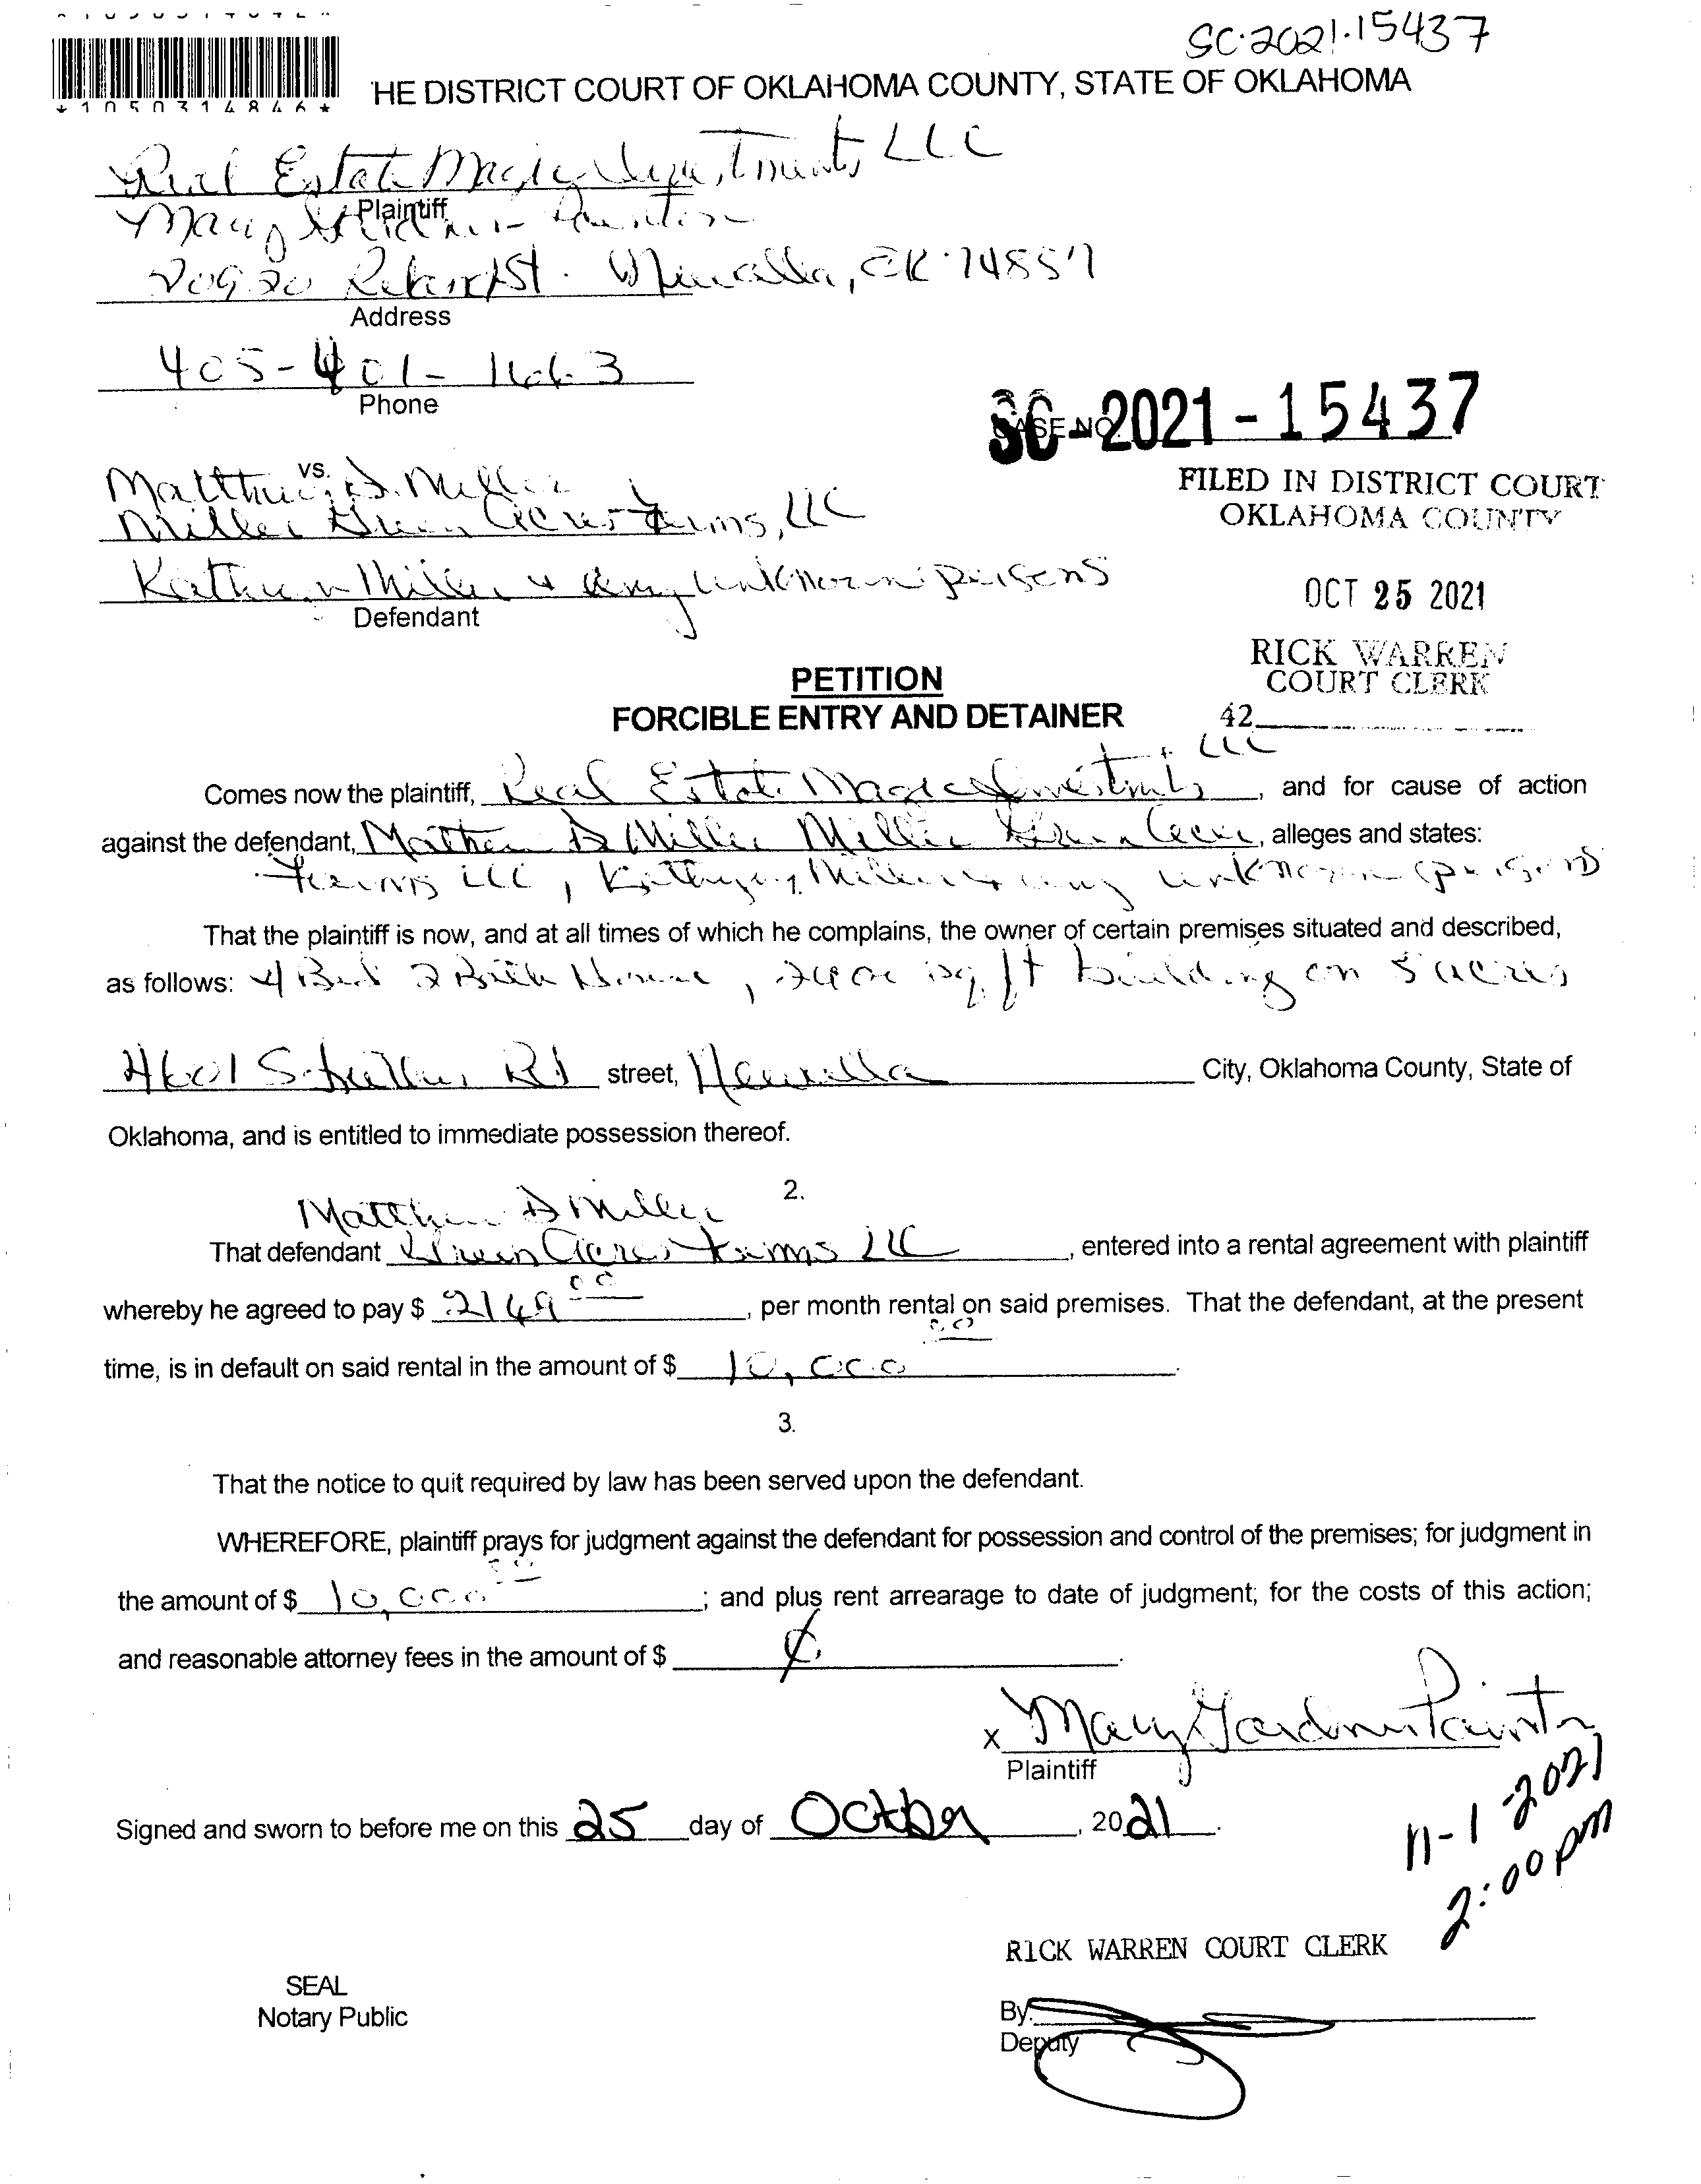 SC-2021-15437
*1050314846*
HE DISTRICT COURT OF OKLAHOMA COUNTY, STATE OF OKLAHOMA
Real Estate Magic Investments LLC
Plaintiff
Mary Gardner-Painter
St. Newalla, OK 74857
Address
405-401-1663
Phone
SC-2021-15437
CASE NO.
FILED IN DISTRICT COURT
OKLAHOMA COUNTY
vs.
Matthew D. Miller
Miller Green Acres Farms, LLC
Kathryn Miller & any unknown persons
Defendant
OCT 25 2021
RICK WARREN
COURT CLERK
42
PETITION
FORCIBLE ENTRY AND DETAINER
Comes now the plaintiff, Real Estate Magic Investments LLC, and for cause of action
against the defendant, Matthew D Miller Miller Green Acres, alleges and states:
Farms LLC, Kathryn Miller & any unknown persons
That the plaintiff is now, and at all times of which he complains, the owner of certain premises situated and described,
as follows: 4 Bed 2 Bath House, 2400 sq ft building on 5 acres
4601 S. Rd street, Newalla City, Oklahoma County, State of
Oklahoma, and is entitled to immediate possession thereof.
2.
Matthew D Miller
That defendant Green Acres Farms LLC, entered into a rental agreement with plaintiff
whereby he agreed to pay $ 2149 00, per month rental on said premises. That the defendant, at the present
time, is in default on said rental in the amount of $ 10,000 00.
3.
That the notice to quit required by law has been served upon the defendant.
WHEREFORE, plaintiff prays for judgment against the defendant for possession and control of the premises; for judgment in
the amount of $ 10,000 00; and plus rent arrearage to date of judgment; for the costs of this action;
and reasonable attorney fees in the amount of $
x Mary Gardner Painter
Plaintiff
Signed and sworn to before me on this 25 day of October, 2021.
11-1-2021
2:00 pm
RICK WARREN COURT CLERK
SEAL
Notary Public
By:
Deputy